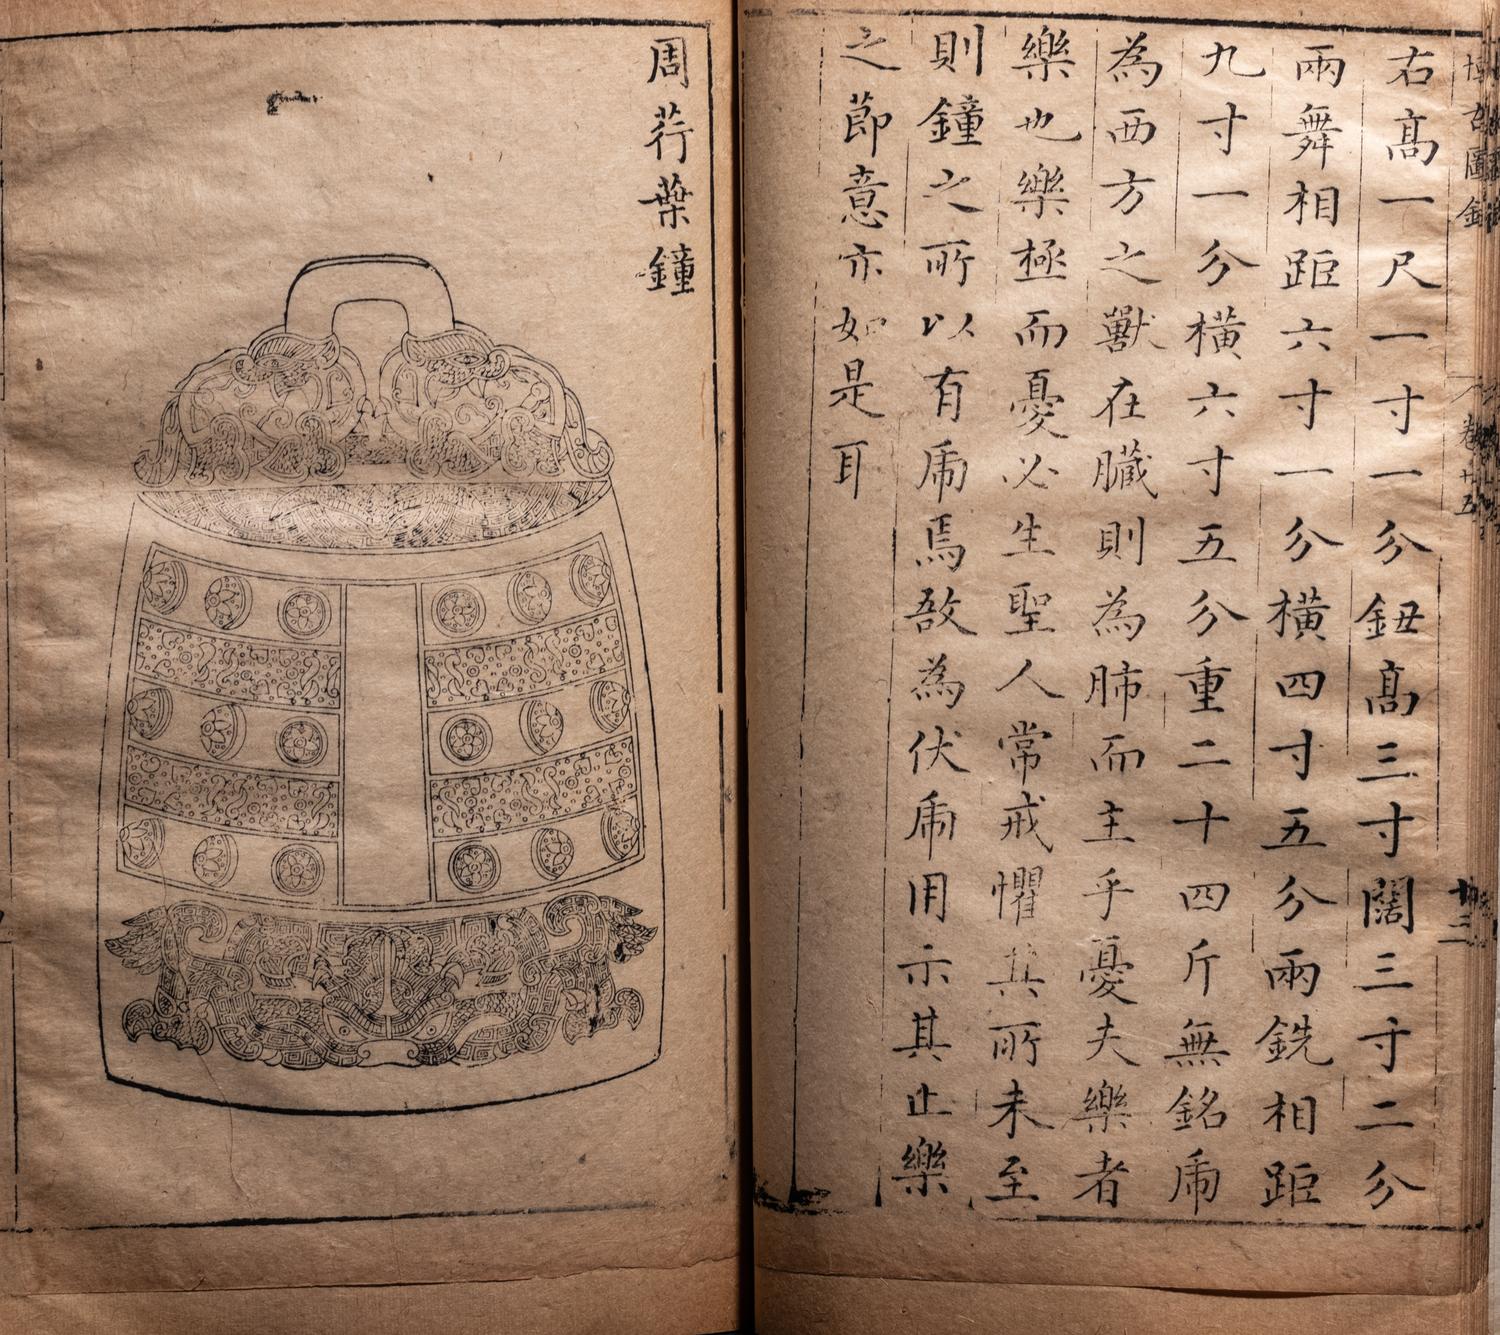 博古圖錄
卷十五
廿三
右高一尺一寸一分鈕高三寸闊三寸二分
兩舞相距六寸一分橫四寸五分兩銑相距
九寸一分橫六寸五分重二十四斤無銘乕
為西方之獸在臟則為肺而主乎憂夫樂者
樂也樂極而憂必生聖人常戒懼其所未至
則鐘之所以有乕焉敔為伏乕用示其止樂
之節意亦如是耳
周荇葉鐘